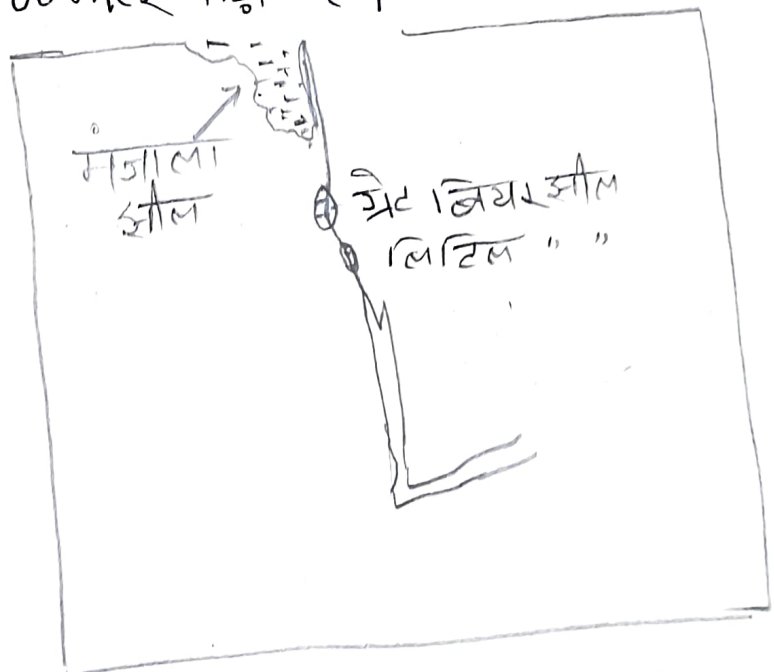 मंजाला
झील
ग्रेट बियर झील
लिटिल " "